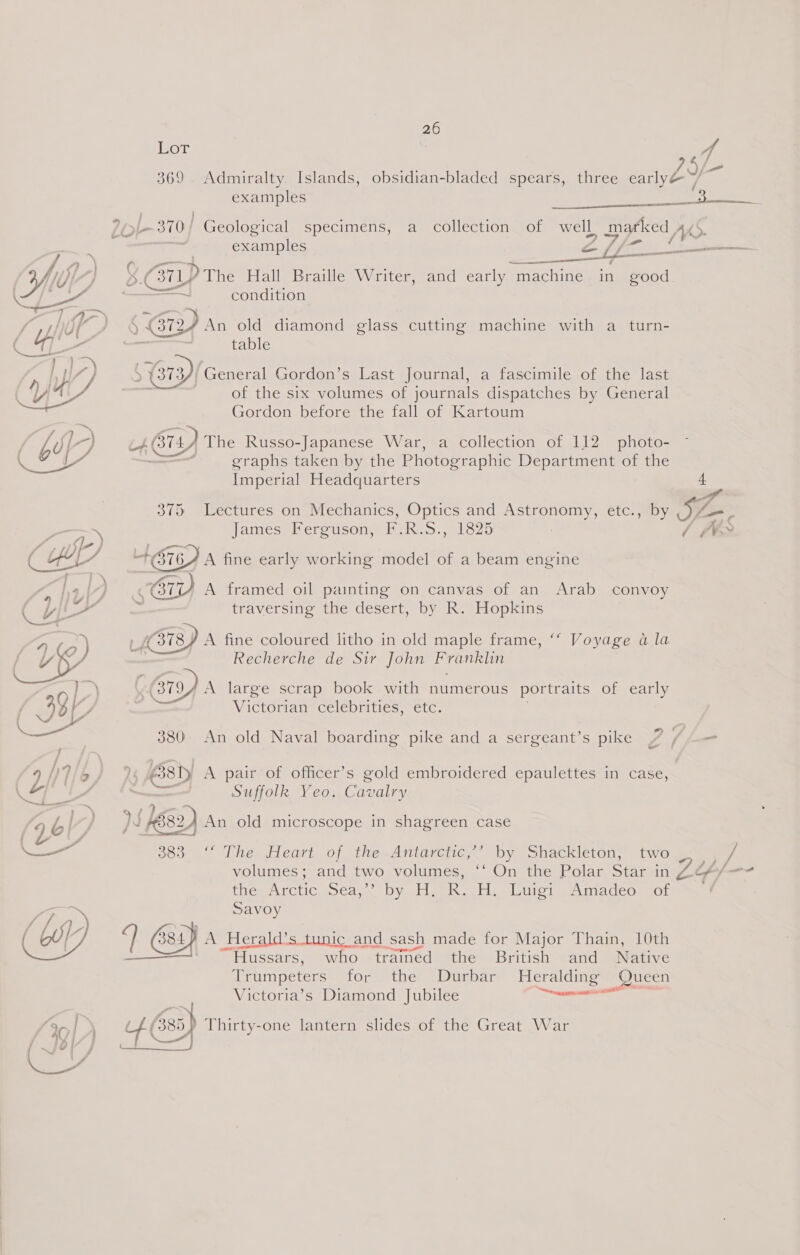 26
Lot
369 Admiralty Islands, obsidian-bladed spears, three early
examples 3
370 Geological specimens, a collection of well marked
examples
371 The Hall Braille Writer, and early machine in good
condition
372 An old diamond glass cutting machine with a turn-
table
373 General Gordon's Last Journal, a fascimile of the last
of the six volumes of journals dispatches by General
Gordon before the fall of Kartoum
374 The Russo-Japanese War, a collection of 112 photo-
graphs taken by the Photographic Department of the
Imperial Headquarters 4
375 Lectures on Mechanics, Optics and Astronomy, etc., by
James Ferguson, F.R.S., 1825
376 A fine early working model of a beam engine
377 A framed oil painting on canvas of an Arab convoy
traversing the desert, by R. Hopkins
378 A fine coloured litho in old maple frame, “ Voyage à la
Recherche de Sir John Franklin
379 A large scrap book with numerous portraits of early
Victorian celebrities, etc.
380 An old Naval boarding pike and a sergeant's pike
381 A pair of officer's gold embroidered epaulettes in case,
Suffolk Yeo. Cavalry
382 An old microscope in shagreen case
383 “ The Heart of the Antarctic,” by Shackleton, two
volumes; and two volumes, “ On the Polar Star in
the Arctic Sea,” by H. R. H. Luigi Amadeo of
Savoy
384 A Herald's tunic and sash made for Major Thain, 10th
Hussars, who trained the British and Native
Trumpeters for the Durbar Heralding Queen
Victoria's Diamond Jubilee
385 Thirty-one lantern slides of the Great War